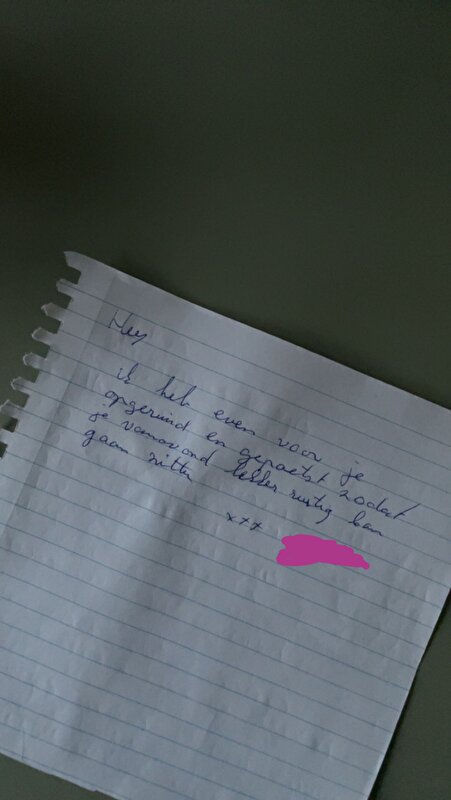 Hey
ik heb even voor je
opgeruimd en gepoetst zodat
je vanavond lekker rustig kan
gaan zitten
xxx